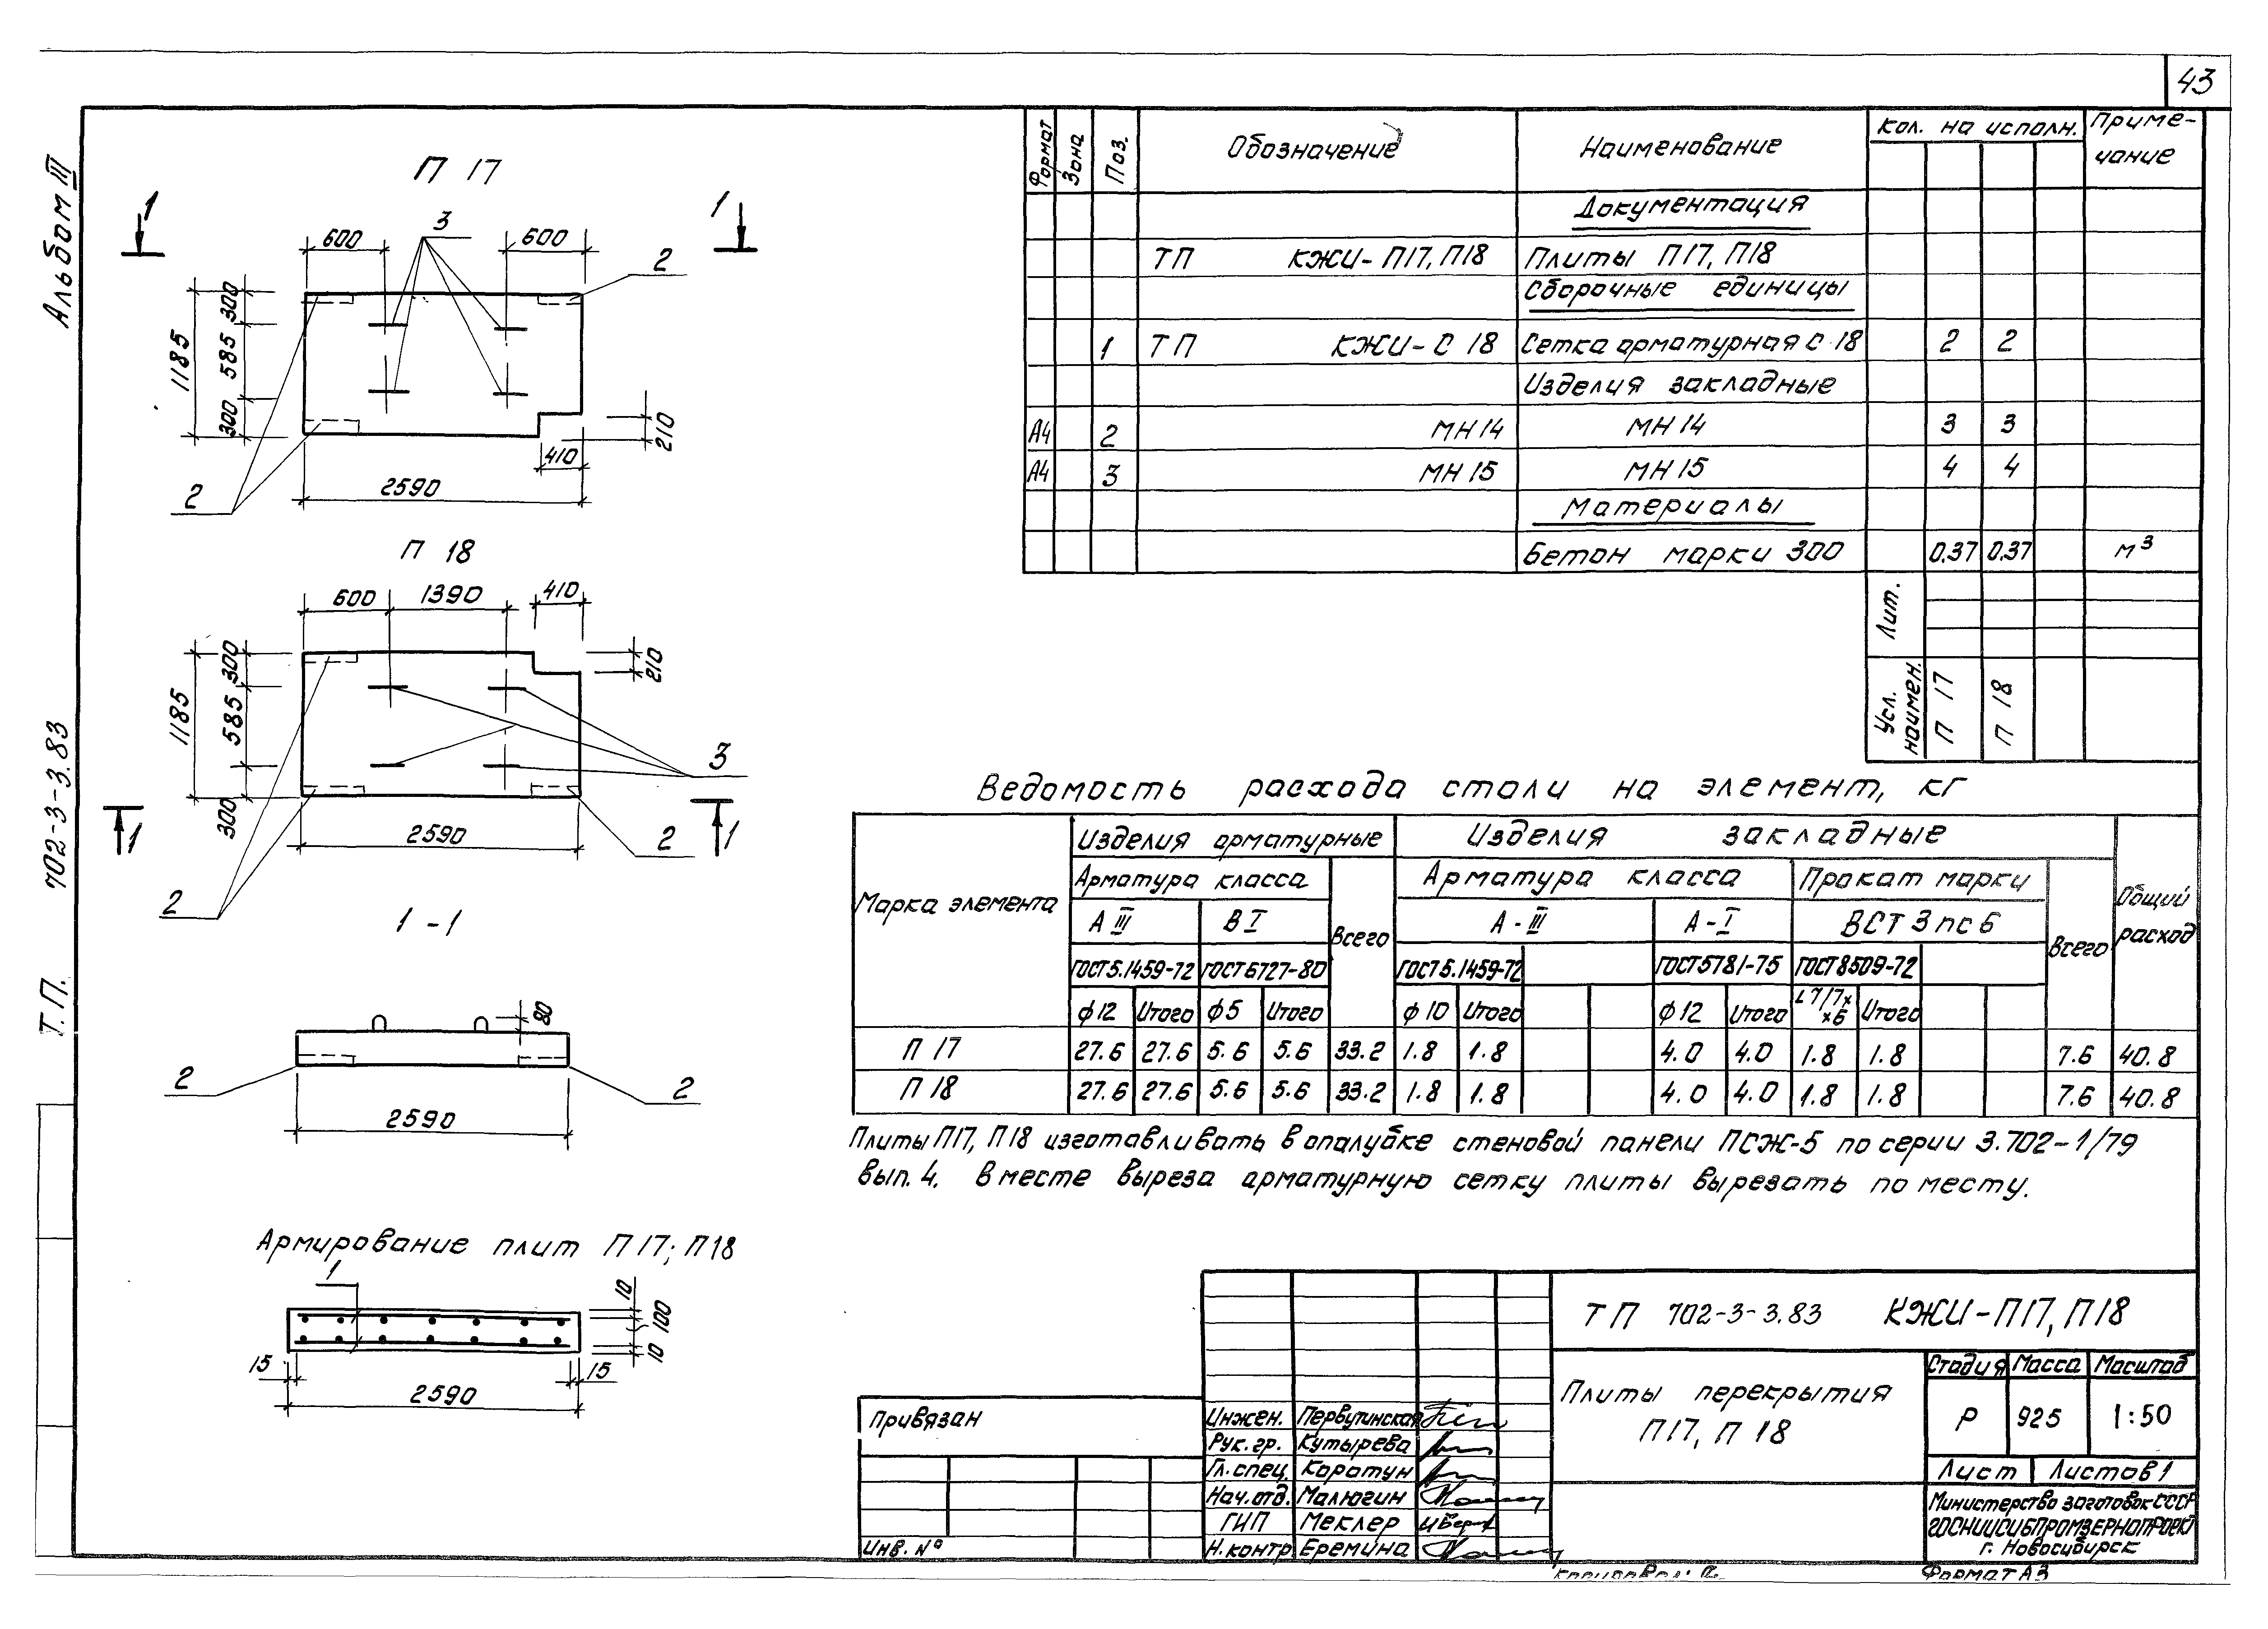 43
Альбом III
702-3-3.83
Т.П.
П 17
1 1
600 3 600
2
1185 300 585 300
210
410
2590
2
П 18
600 1390 410
210
1185 300 585 300
3
1 1
2590
2
2
1-1
80
2 2
2590
Армирование плит П17; П18
1
10 100 10
15 15
2590
Формат Зона Поз. Обозначение Наименование Кол. на исполн. Приме-
чание
Документация
ТП КЖИ-П17, П18 Плиты П17, П18
Сборочные единицы
1 ТП КЖИ-С 18 Сетка арматурная С 18 2 2
Изделия закладные
А4 2 МН14 МН14 3 3
А4 3 МН15 МН15 4 4
Материалы
Бетон марки 300 0.37 0.37 м³
Лит.
Усл. наимен. П 17 П 18
Ведомость расхода стали на элемент, кг
Марка элемента Изделия арматурные Изделия закладные Общий расход
Арматура класса Всего Арматура класса Прокат марки Всего
А III В I А-III А-I ВСТ 3 пс 6
ГОСТ 5.1459-72 ГОСТ 6727-80 ГОСТ 5.1459-72 ГОСТ 5781-75 ГОСТ 8509-72
ф12 Итого ф5 Итого ф10 Итого ф12 Итого L7/7××6 Итого
П 17 27.6 27.6 5.6 5.6 33.2 1.8 1.8 4.0 4.0 1.8 1.8 7.6 40.8
П 18 27.6 27.6 5.6 5.6 33.2 1.8 1.8 4.0 4.0 1.8 1.8 7.6 40.8
Плиты П17, П18 изготавливать в опалубке стеновой панели ПСЖ-5 по серии 3.702-1/79
вып. 4. В месте выреза арматурную сетку плиты вырезать по месту.
ТП 702-3-3.83 КЖИ-П17, П18
Плиты перекрытия
П17, П 18
Стадия Масса Масштаб
Р 925 1:50
Лист Листов 1
Министерство заготовок СССР
ГОСНИИСИБПРОМЗЕРНОПРОЕКТ
г. Новосибирск
Привязан
Инв. №
Инжен. Первутинская
Рук. гр. Кутырева
Гл. спец. Коротун
Нач. отд. Малюгин
ГИП Меклер
Н. контр Еремина
Формат А3